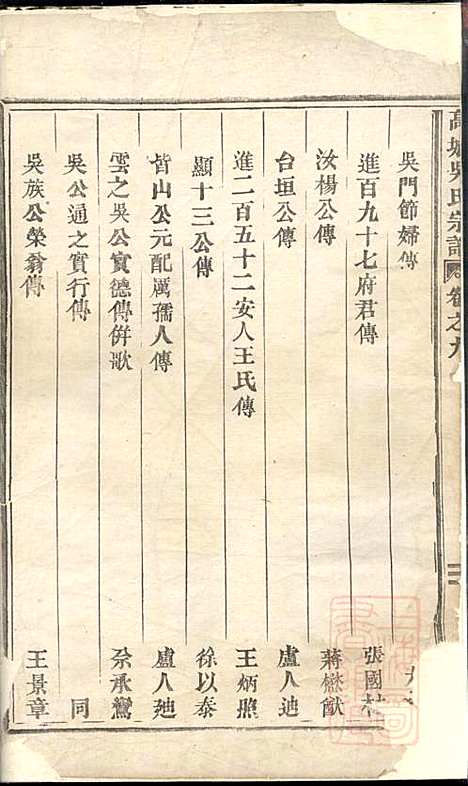 高城吳氏宗譜 卷之九
吳門節婦傳
進百九十七府君傳 張國
汝楊公傳 蔣懋猷
台垣公傳 盧人迪
進二百五十二安人王氏傳 王炳照
顯十三公傳 徐以泰
皆山公元配厲孺人傳 盧人迪
雲之吳公實德傳併歌 佘承鸞
吳公通之實行傳 同
吳族公榮翁傳 王景章